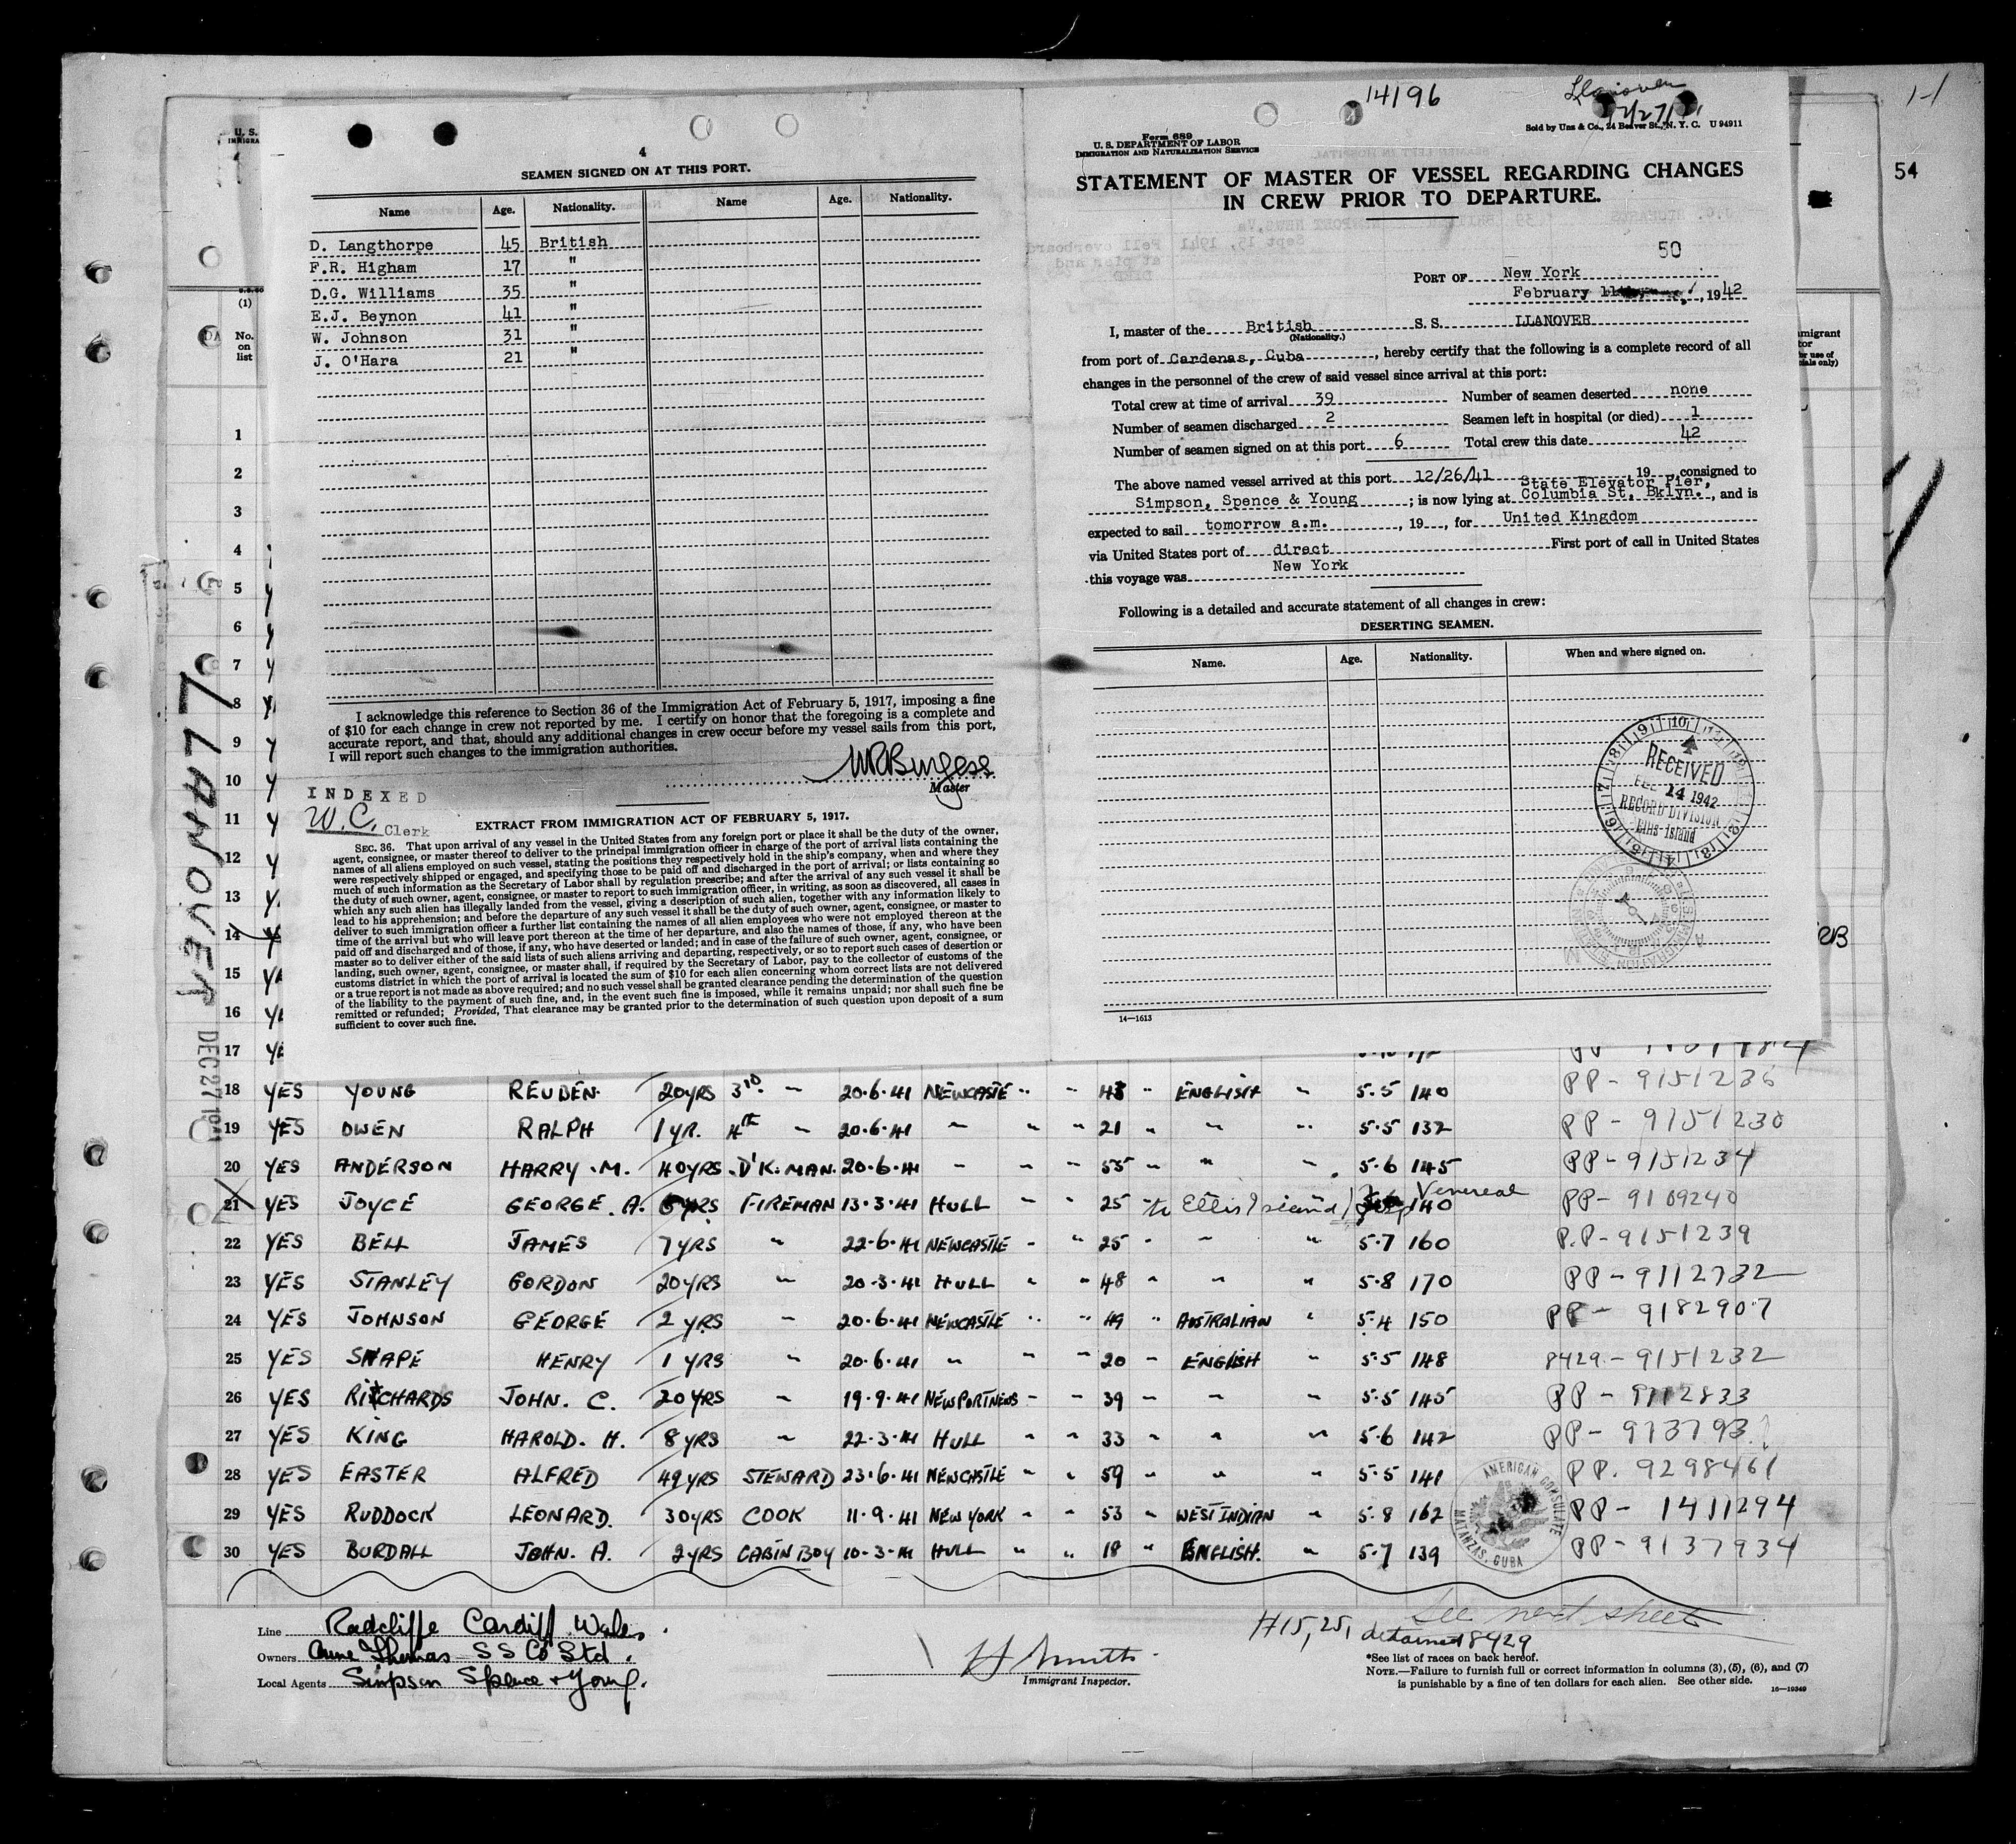 14196
Llanover
Sold by Unz & Co., 24 Beaver St., N. Y. C. U 94911
54
4
SEAMEN SIGNED ON AT THIS PORT.
Name Age. Nationality. Name Age. Nationality.
D. Langthorpe 45 British
F.R. Higham 17 "
D.G. Williams 35 "
E.J. Beynon 41 "
W. Johnson 31 "
J. O'Hara 21 "
I acknowledge this reference to Section 36 of the Immigration Act of February 5, 1917, imposing a fine
of $10 for each change in crew not reported by me. I certify on honor that the foregoing is a complete and
accurate report, and that, should any additional changes in crew occur before my vessel sails from this port,
I will report such changes to the immigration authorities.
WRBurgess
Master
INDEXED
W.C. Clerk
EXTRACT FROM IMMIGRATION ACT OF FEBRUARY 5, 1917.
SEC. 36. That upon arrival of any vessel in the United States from any foreign port or place it shall be the duty of the owner,
agent, consignee, or master thereof to deliver to the principal immigration officer in charge of the port of arrival lists containing the
names of all aliens employed on such vessel, stating the positions they respectively hold in the ship's company, when and where they
were respectively shipped or engaged, and specifying those to be paid off and discharged in the port of arrival; or lists containing so
much of such information as the Secretary of Labor shall by regulation prescribe; and after the arrival of any such vessel it shall be
the duty of such owner, agent, consignee, or master to report to such immigration officer, in writing, as soon as discovered, all cases in
which any such alien has illegally landed from the vessel, giving a description of such alien, together with any information likely to
lead to his apprehension; and before the departure of any such vessel it shall be the duty of such owner, agent, consignee, or master to
deliver to such immigration officer a further list containing the names of all alien employees who were not employed thereon at the
time of the arrival but who will leave port thereon at the time of her departure, and also the names of those, if any, who have been
paid off and discharged and of those, if any, who have deserted or landed; and in case of the failure of such owner, agent, consignee, or
master so to deliver either of the said lists of such aliens arriving and departing, respectively, or so to report such cases of desertion or
landing, such owner, agent, consignee, or master shall, if required by the Secretary of Labor, pay to the collector of customs of the
customs district in which the port of arrival is located the sum of $10 for each alien concerning whom correct lists are not delivered
or a true report is not made as above required; and no such vessel shall be granted clearance pending the determination of the question
of the liability to the payment of such fine, and, in the event such fine is imposed, while it remains unpaid; nor shall such fine be
remitted or refunded; Provided, That clearance may be granted prior to the determination of such question upon deposit of a sum
sufficient to cover such fine.
Form 689
U. S. DEPARTMENT OF LABOR
IMMIGRATION AND NATURALIZATION SERVICE
STATEMENT OF MASTER OF VESSEL REGARDING CHANGES
IN CREW PRIOR TO DEPARTURE.
50
PORT OF New York
February 11, 1942
I, master of the British S. S. LLANOVER
(Nationality.)
from port of Cardenas, Cuba, hereby certify that the following is a complete record of all
changes in the personnel of the crew of said vessel since arrival at this port:
Total crew at time of arrival 39 Number of seamen deserted none
Number of seamen discharged 2 Seamen left in hospital (or died) 1
Number of seamen signed on at this port 6 Total crew this date 42
The above named vessel arrived at this port 12/26/41 19 , consigned to
Simpson, Spence & Young ; is now lying at State Elevator Pier, Columbia St, Bklyn. , and is
expected to sail tomorrow a.m. , 19 , for United Kingdom
via United States port of direct First port of call in United States
this voyage was New York
Following is a detailed and accurate statement of all changes in crew:
DESERTING SEAMEN.
Name. Age. Nationality. When and where signed on.
RECEIVED
FEB 14 1942
RECORD DIVISION
Ellis Island
14—1613
U. S.
IMMIGRA
(1)
No.
on
list
1
2
3
4
5
6
7
8
9
10
11
12
13
14
15
16
17
LLANOVER
DEC 27 1941
18 YES YOUNG REUBEN. 20YRS 3RD. " 20.6.41 NEWCASTLE " " 43 " ENGLISH " 5.5 140 PP - 9151236
19 YES OWEN RALPH 1 YR. 4TH " 20.6.41 " " " 21 " " " 5.5 132 PP - 9151230
20 YES ANDERSON HARRY .M. 40YRS D'K. MAN. 20.6.41 " " " 55 " " " 5.6 145 PP - 9151234
21 YES JOYCE GEORGE. A. 6YRS FIREMAN 13.3.41 HULL " " 25 to Ellis Island Hosp Venereal 140 PP - 9109240
22 YES BELL JAMES 7YRS " 22.6.41 NEWCASTLE " " 25 " " " 5.7 160 P.P - 9151239
23 YES STANLEY GORDON 20YRS " 20.3.41 HULL " " 48 " " " 5.8 170 PP - 9112732
24 YES JOHNSON GEORGE 2 YRS " 20.6.41 NEWCASTLE " " 49 " AUSTRALIAN " 5.4 150 PP - 9182907
25 YES SNAPE HENRY 1 YRS " 20.6.41 " " " 20 " ENGLISH " 5.5 148 8429 - 9151232
26 YES RICHARDS JOHN. C. 20YRS " 19.9.41 NEWPORTNEWS " 39 " " " 5.5 145 PP - 9112833
27 YES KING HAROLD. H. 8YRS " 22.3.41 HULL " " 33 " " " 5.6 142 PP - 913793
28 YES EASTER ALFRED 49YRS STEWARD 23.6.41 NEWCASTLE " " 59 " " " 5.5 141 PP. 9298461
29 YES RUDDOCK LEONARD. 30YRS COOK 11.9.41 NEW YORK " " 53 " WEST INDIAN " 5.8 162 PP - 1411294
30 YES BURDALL JOHN. A. 2YRS CABIN BOY 10.3.41 HULL " " 18 " ENGLISH. " 5.7 139 PP - 9137934
AMERICAN CONSULATE
MATANZAS, CUBA
See next sheet
#15, 25, detained 8429
Line Radcliffe Cardiff Wales.
Owners Thomas S S Co Ltd.
Local Agents Simpson Spence & Young.
Immigrant Inspector.
*See list of races on back hereof.
NOTE.—Failure to furnish full or correct information in columns (3), (5), (6), and (7)
is punishable by a fine of ten dollars for each alien. See other side.
16—19349